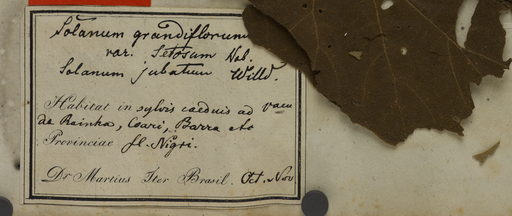 Solanum grandiflorum
var. Setosum Nob.
Solanum jubatum Willd.
Habitat in sylvis caeduis ad
de Rainha, Coari, Barra etc
Provinciae fl. Nigri.
Dr Martius Iter Brasil. Oct. Nov